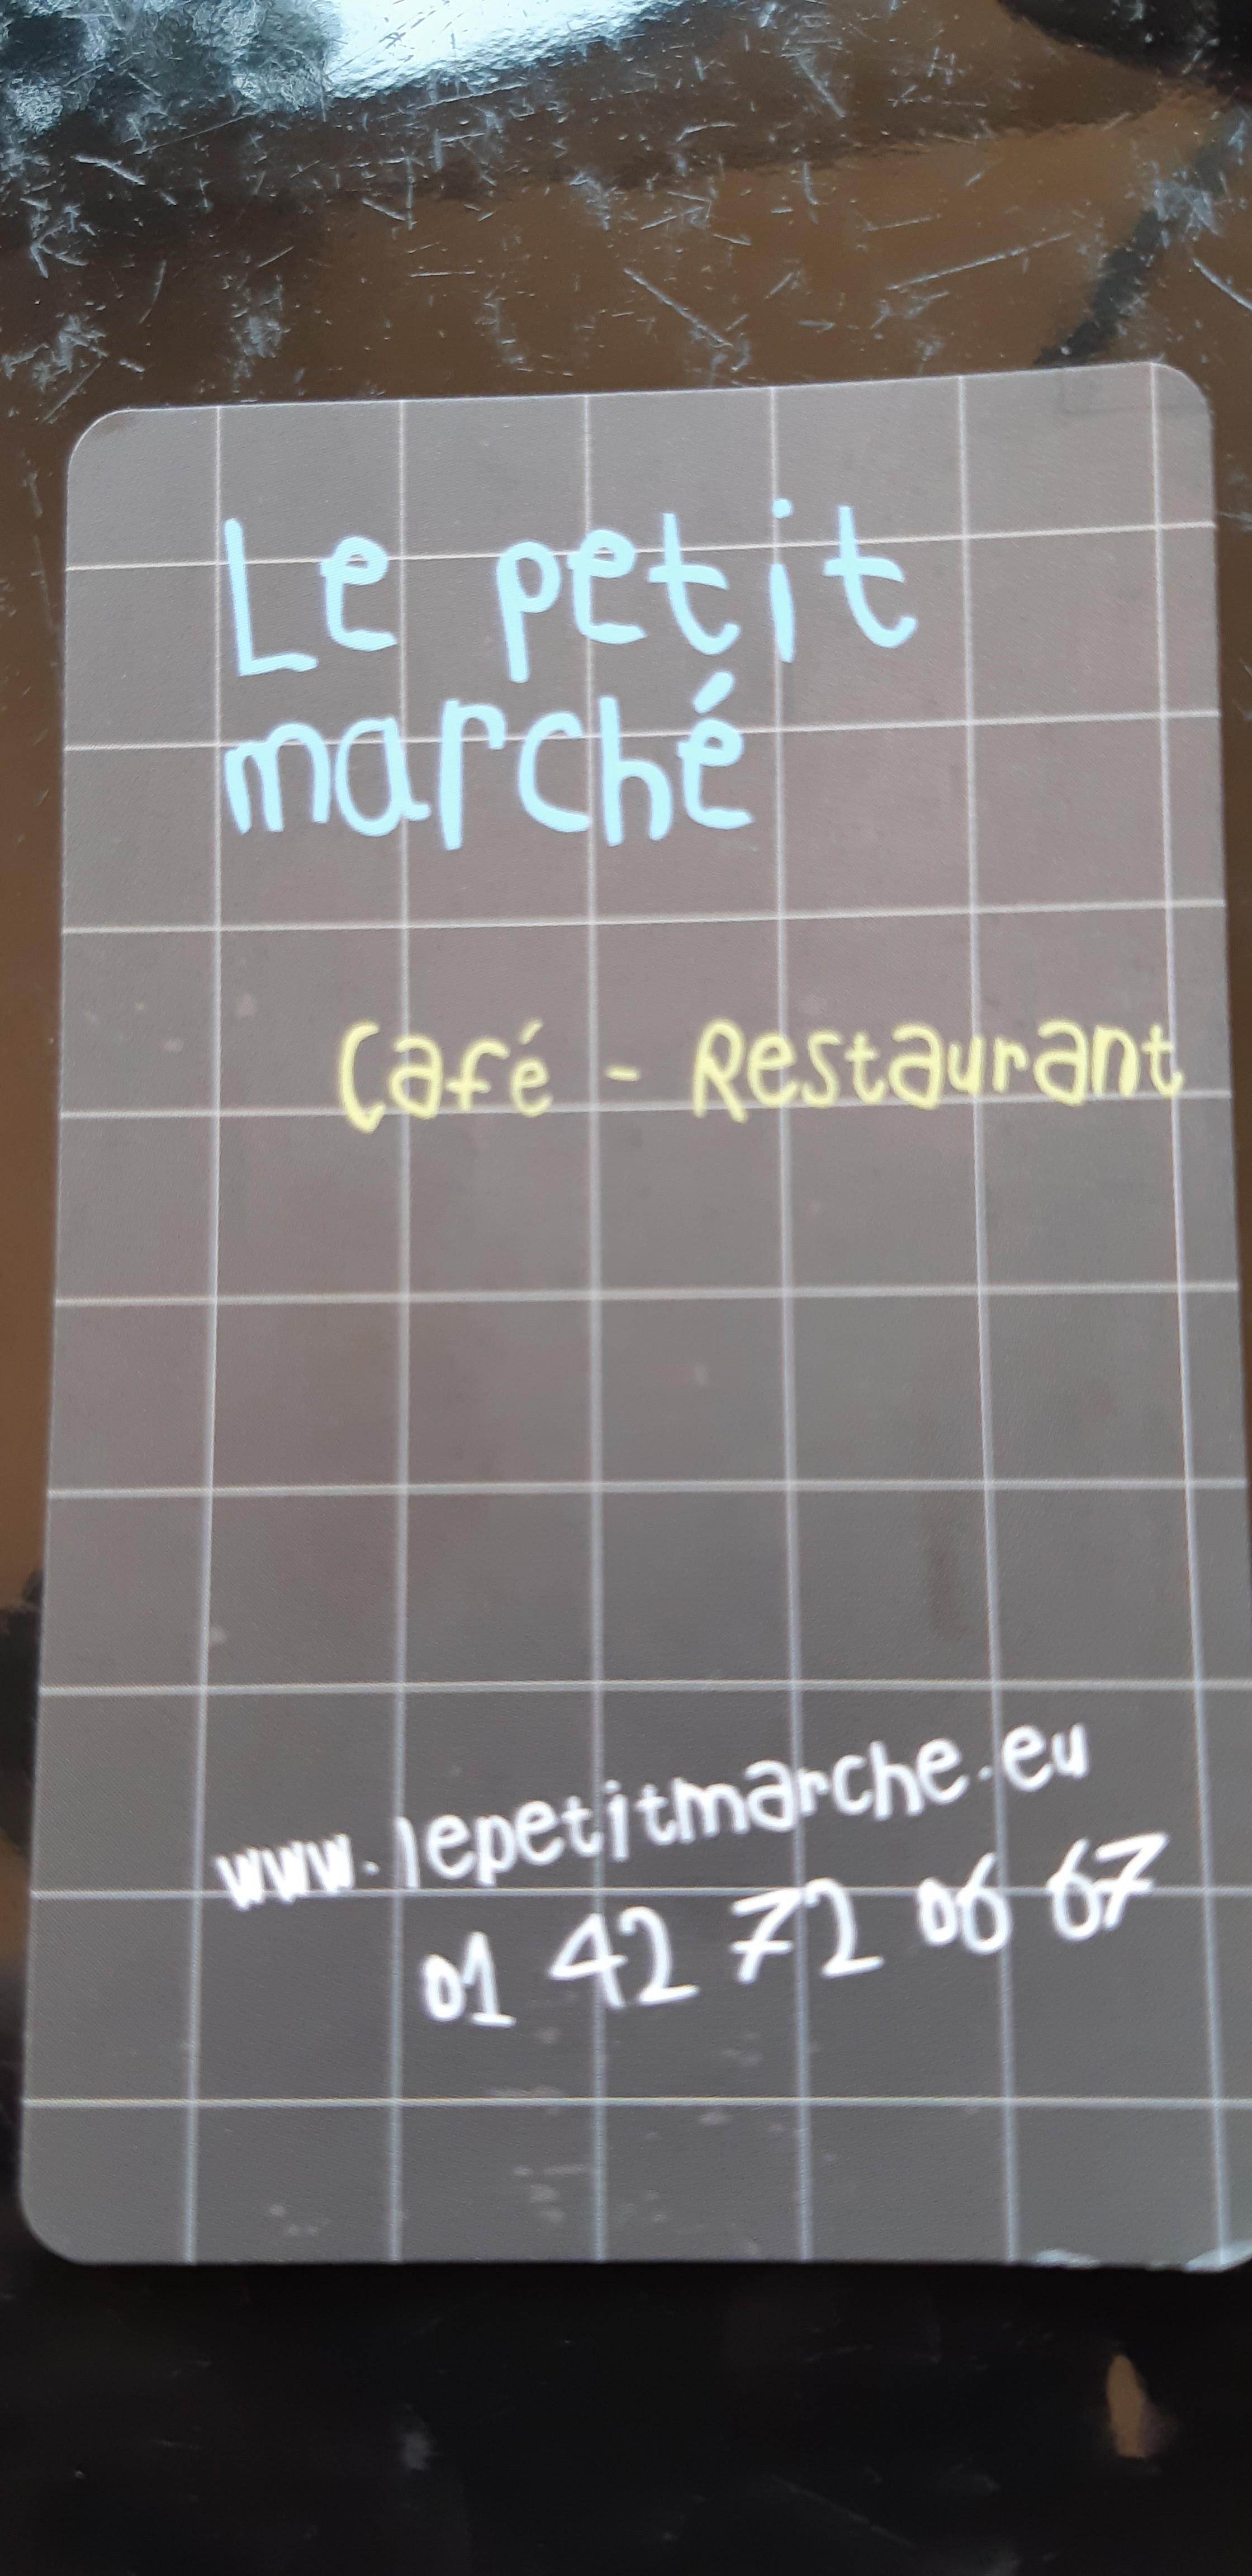 Le petit
marché
Café - Restaurant
www.lepetitmarche.eu
01 42 72 06 67